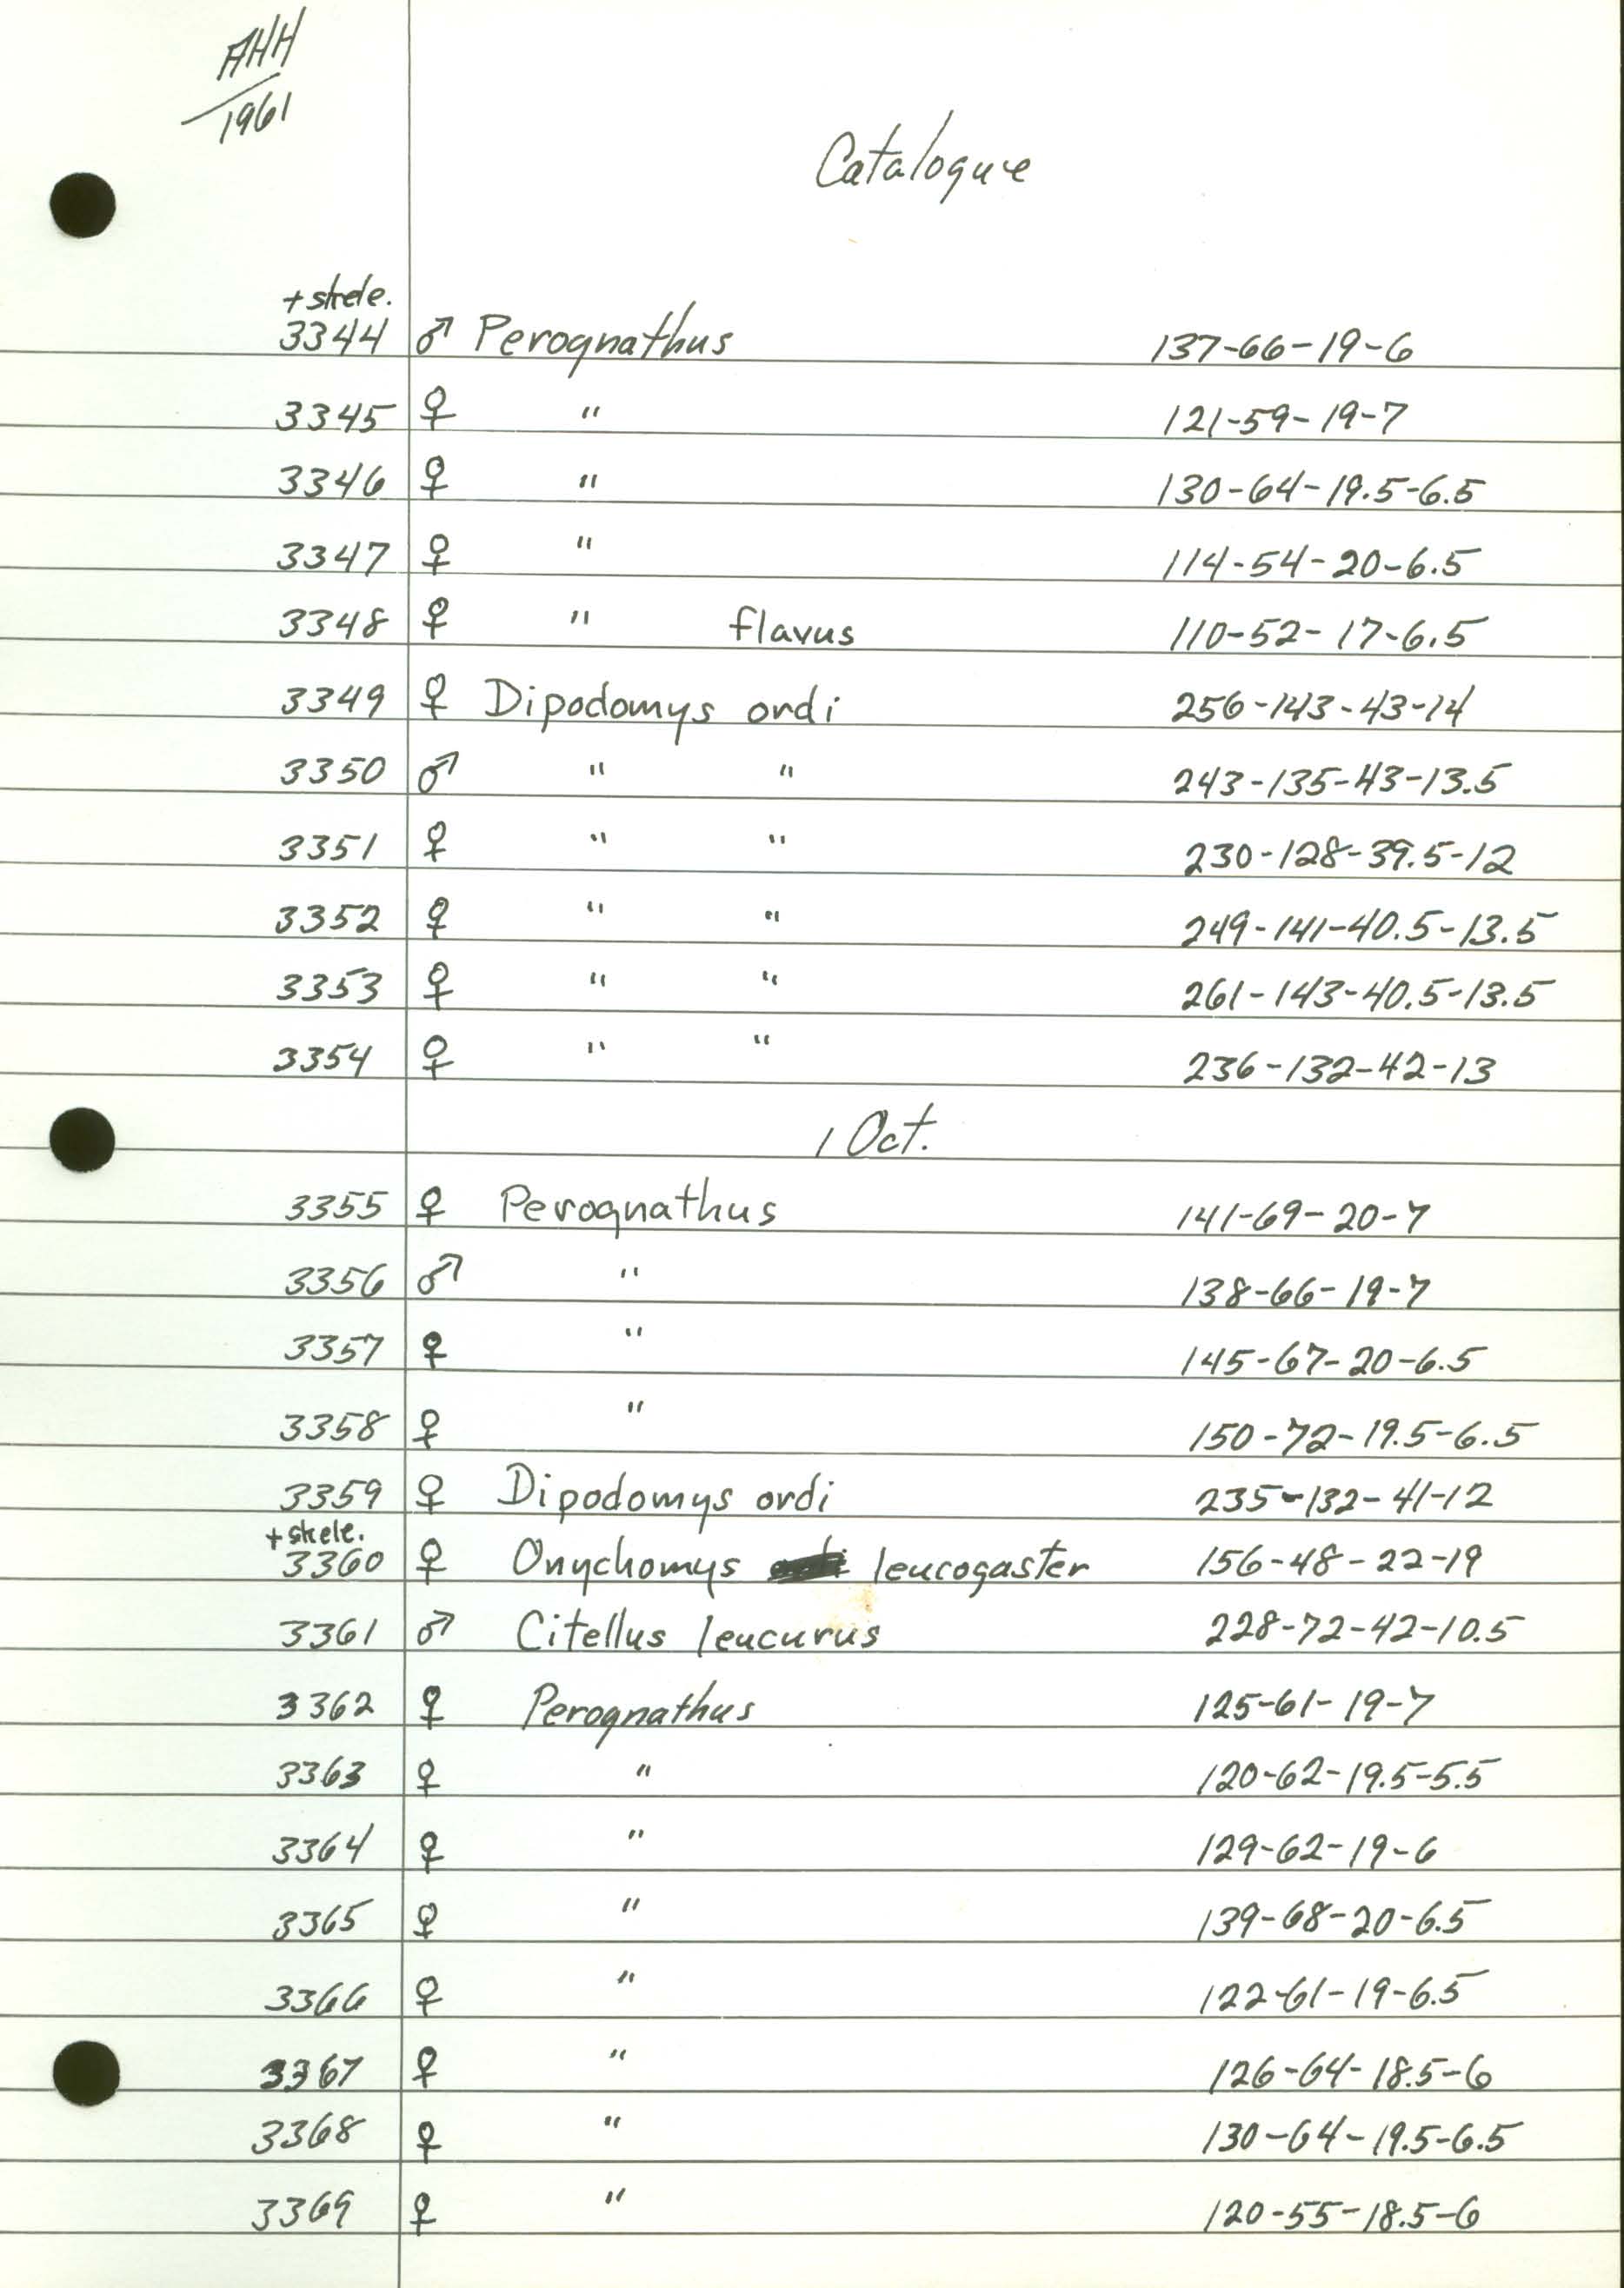 AHH
1961
Catalogue
+ skele.
3344 ♂ Perognathus 137-66-19-6
3345 ♀ " 121-59-19-7
3346 ♀ " 130-64-19.5-6.5
3347 ♀ " 114-54-20-6.5
3348 ♀ " flavus 110-52-17-6.5
3349 ♀ Dipodomys ordi 256-143-43-14
3350 ♂ " " 243-135-43-13.5
3351 ♀ " " 230-128-39.5-12
3352 ♀ " " 249-141-40.5-13.5
3353 ♀ " " 261-143-40.5-13.5
3354 ♀ " " 236-132-42-13
1 Oct.
3355 ♀ Perognathus 141-69-20-7
3356 ♂ " 138-66-19-7
3357 ♀ " 145-67-20-6.5
3358 ♀ " 150-72-19.5-6.5
3359 ♀ Dipodomys ordi 235-132-41-12
+ skele.
3360 ♀ Onychomys leucogaster 156-48-22-19
3361 ♂ Citellus leucurus 228-72-42-10.5
3362 ♀ Perognathus 125-61-19-7
3363 ♀ " 120-62-19.5-5.5
3364 ♀ " 129-62-19-6
3365 ♀ " 139-68-20-6.5
3366 ♀ " 122-61-19-6.5
3367 ♀ " 126-64-18.5-6
3368 ♀ " 130-64-19.5-6.5
3369 ♀ " 120-55-18.5-6